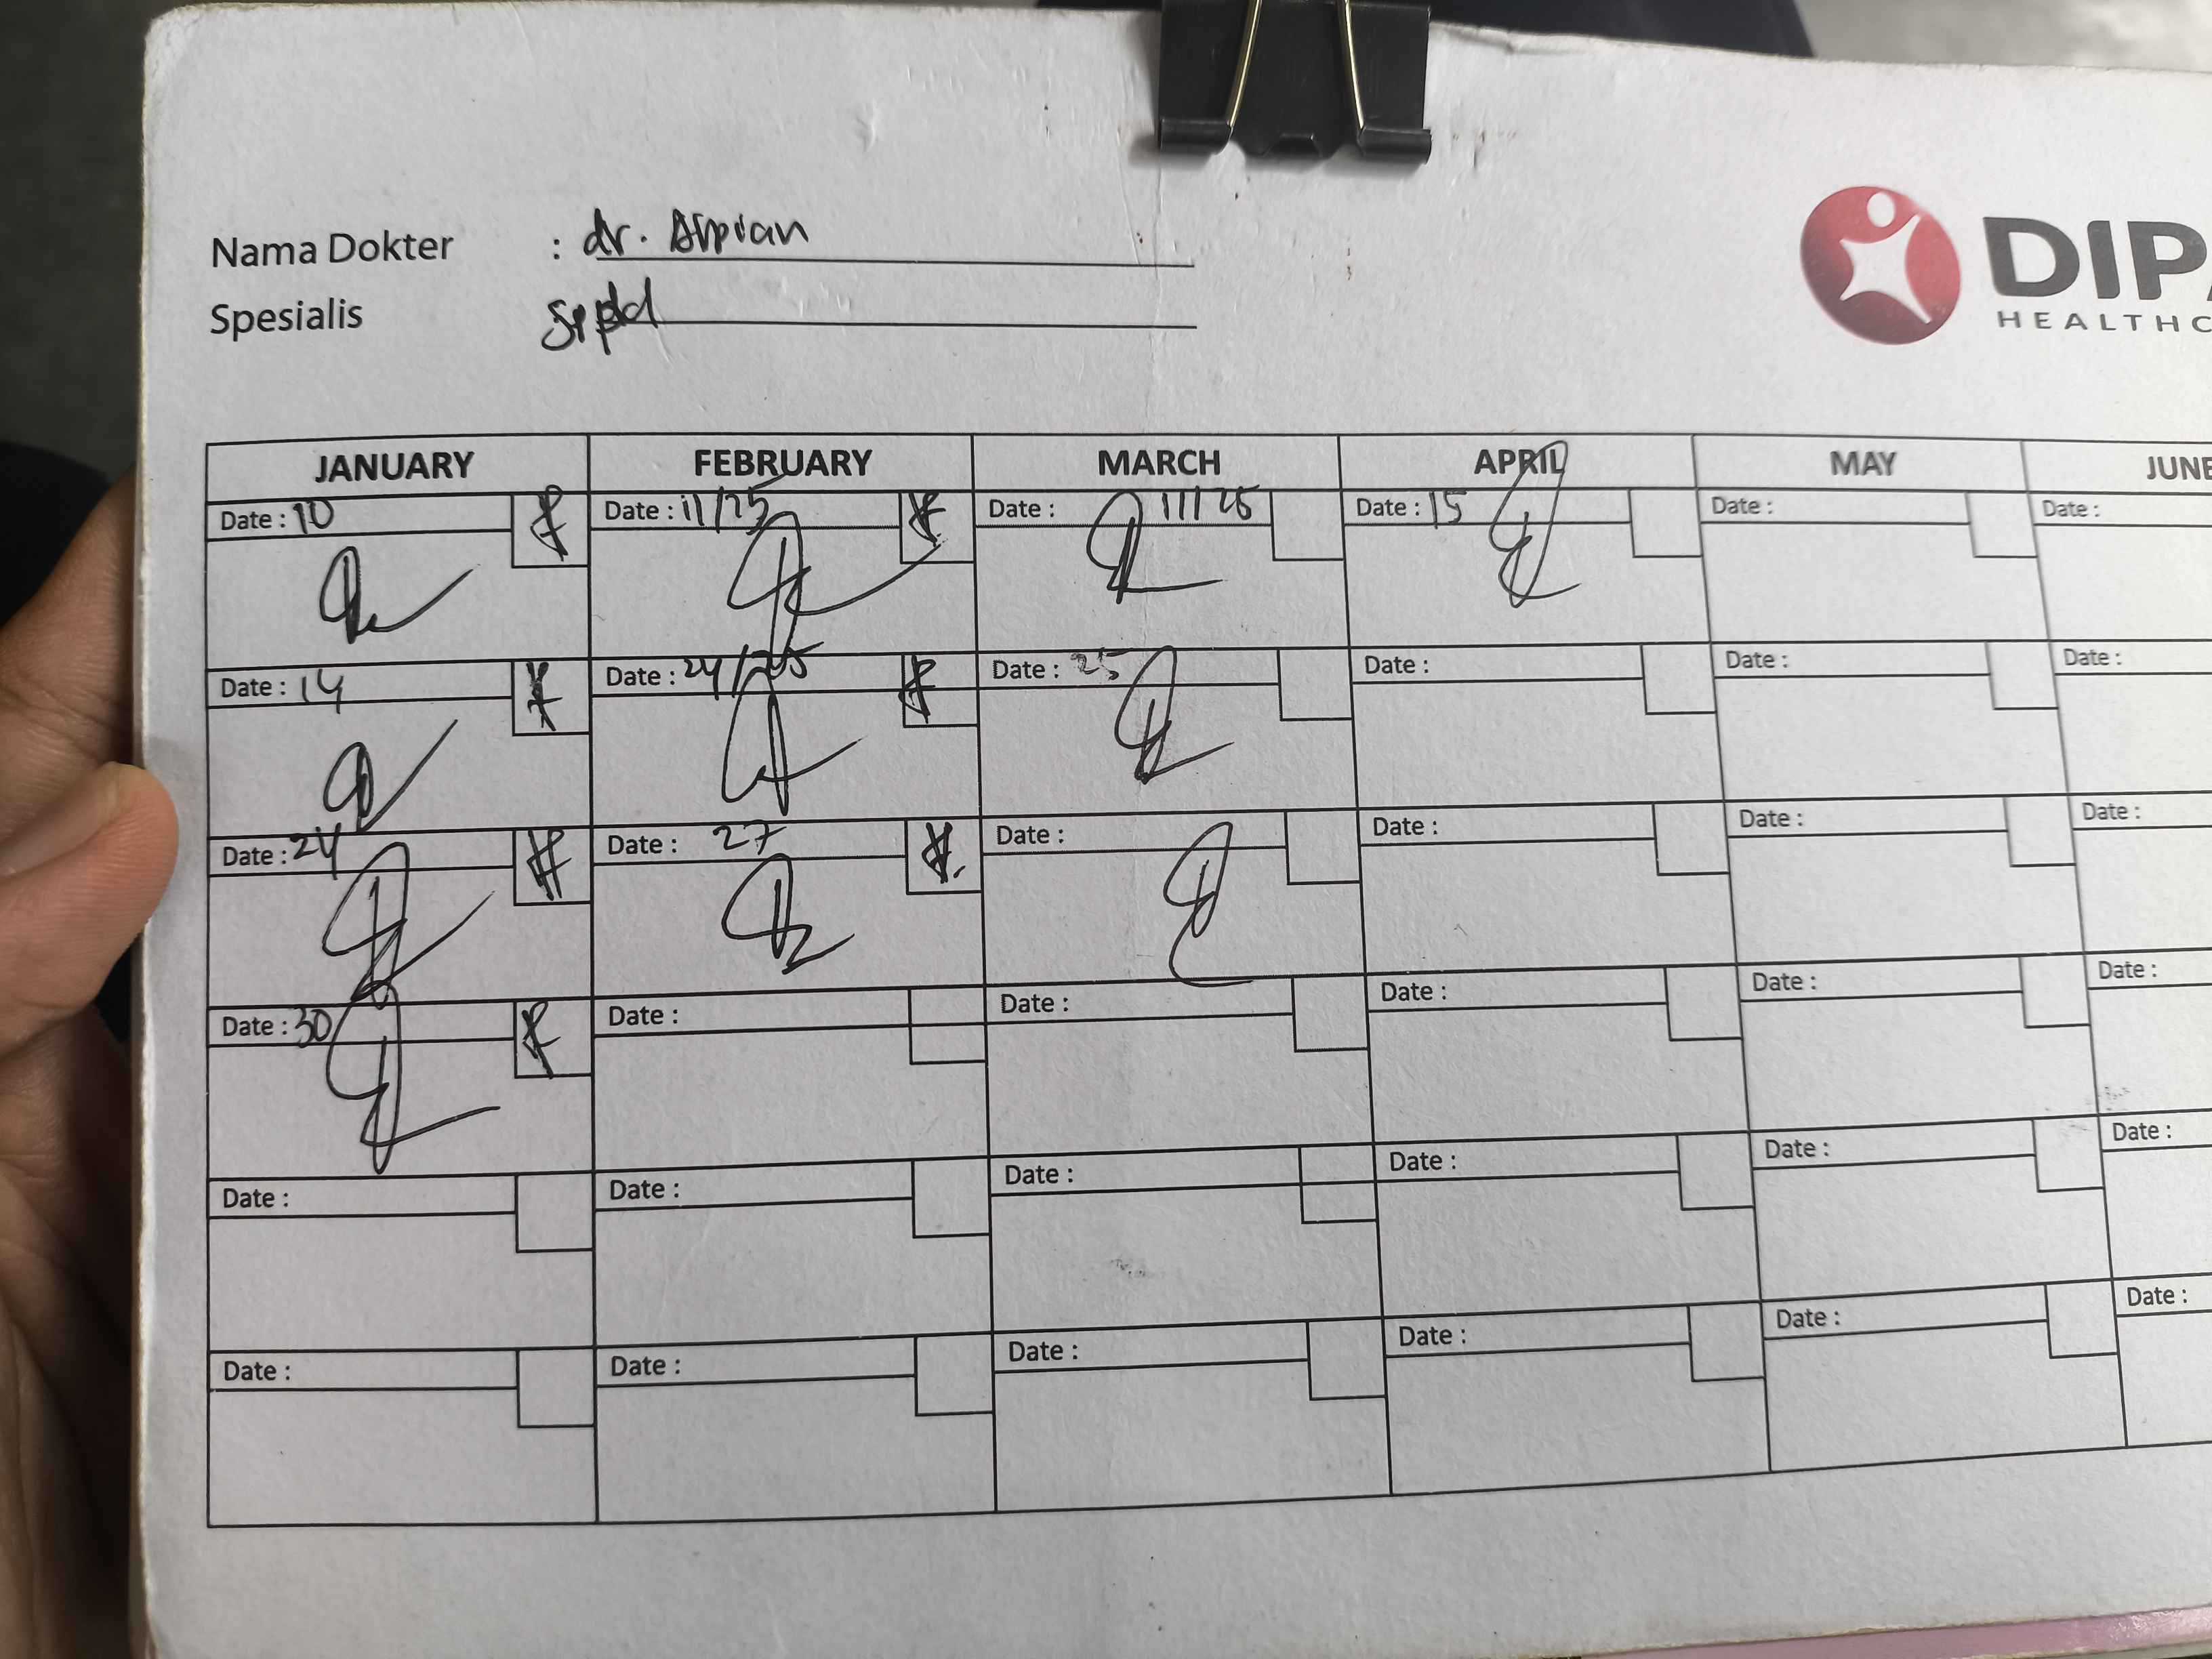 Nama Dokter : dr. Arpian
Spesialis
DIPA
HEALTHC
JANUARY FEBRUARY MARCH APRIL MAY JUNE
Date : 10 Date : 11/25 Date : 11/25 Date : 15 Date : Date :
Date : 14 Date : 24/25 Date : 25 Date : Date : Date :
Date : 24 Date : 27 Date : Date : Date : Date :
Date : 30 Date : Date : Date : Date : Date :
Date : Date : Date : Date : Date : Date :
Date : Date : Date : Date : Date : Date :